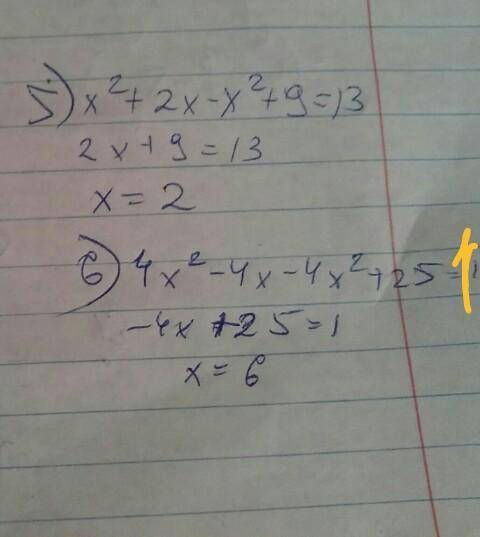 5) x²+2x-x²+9=13
2x+9=13
x=2
6) 4x²-4x-4x²+25=1
-4x+25=1
x=6